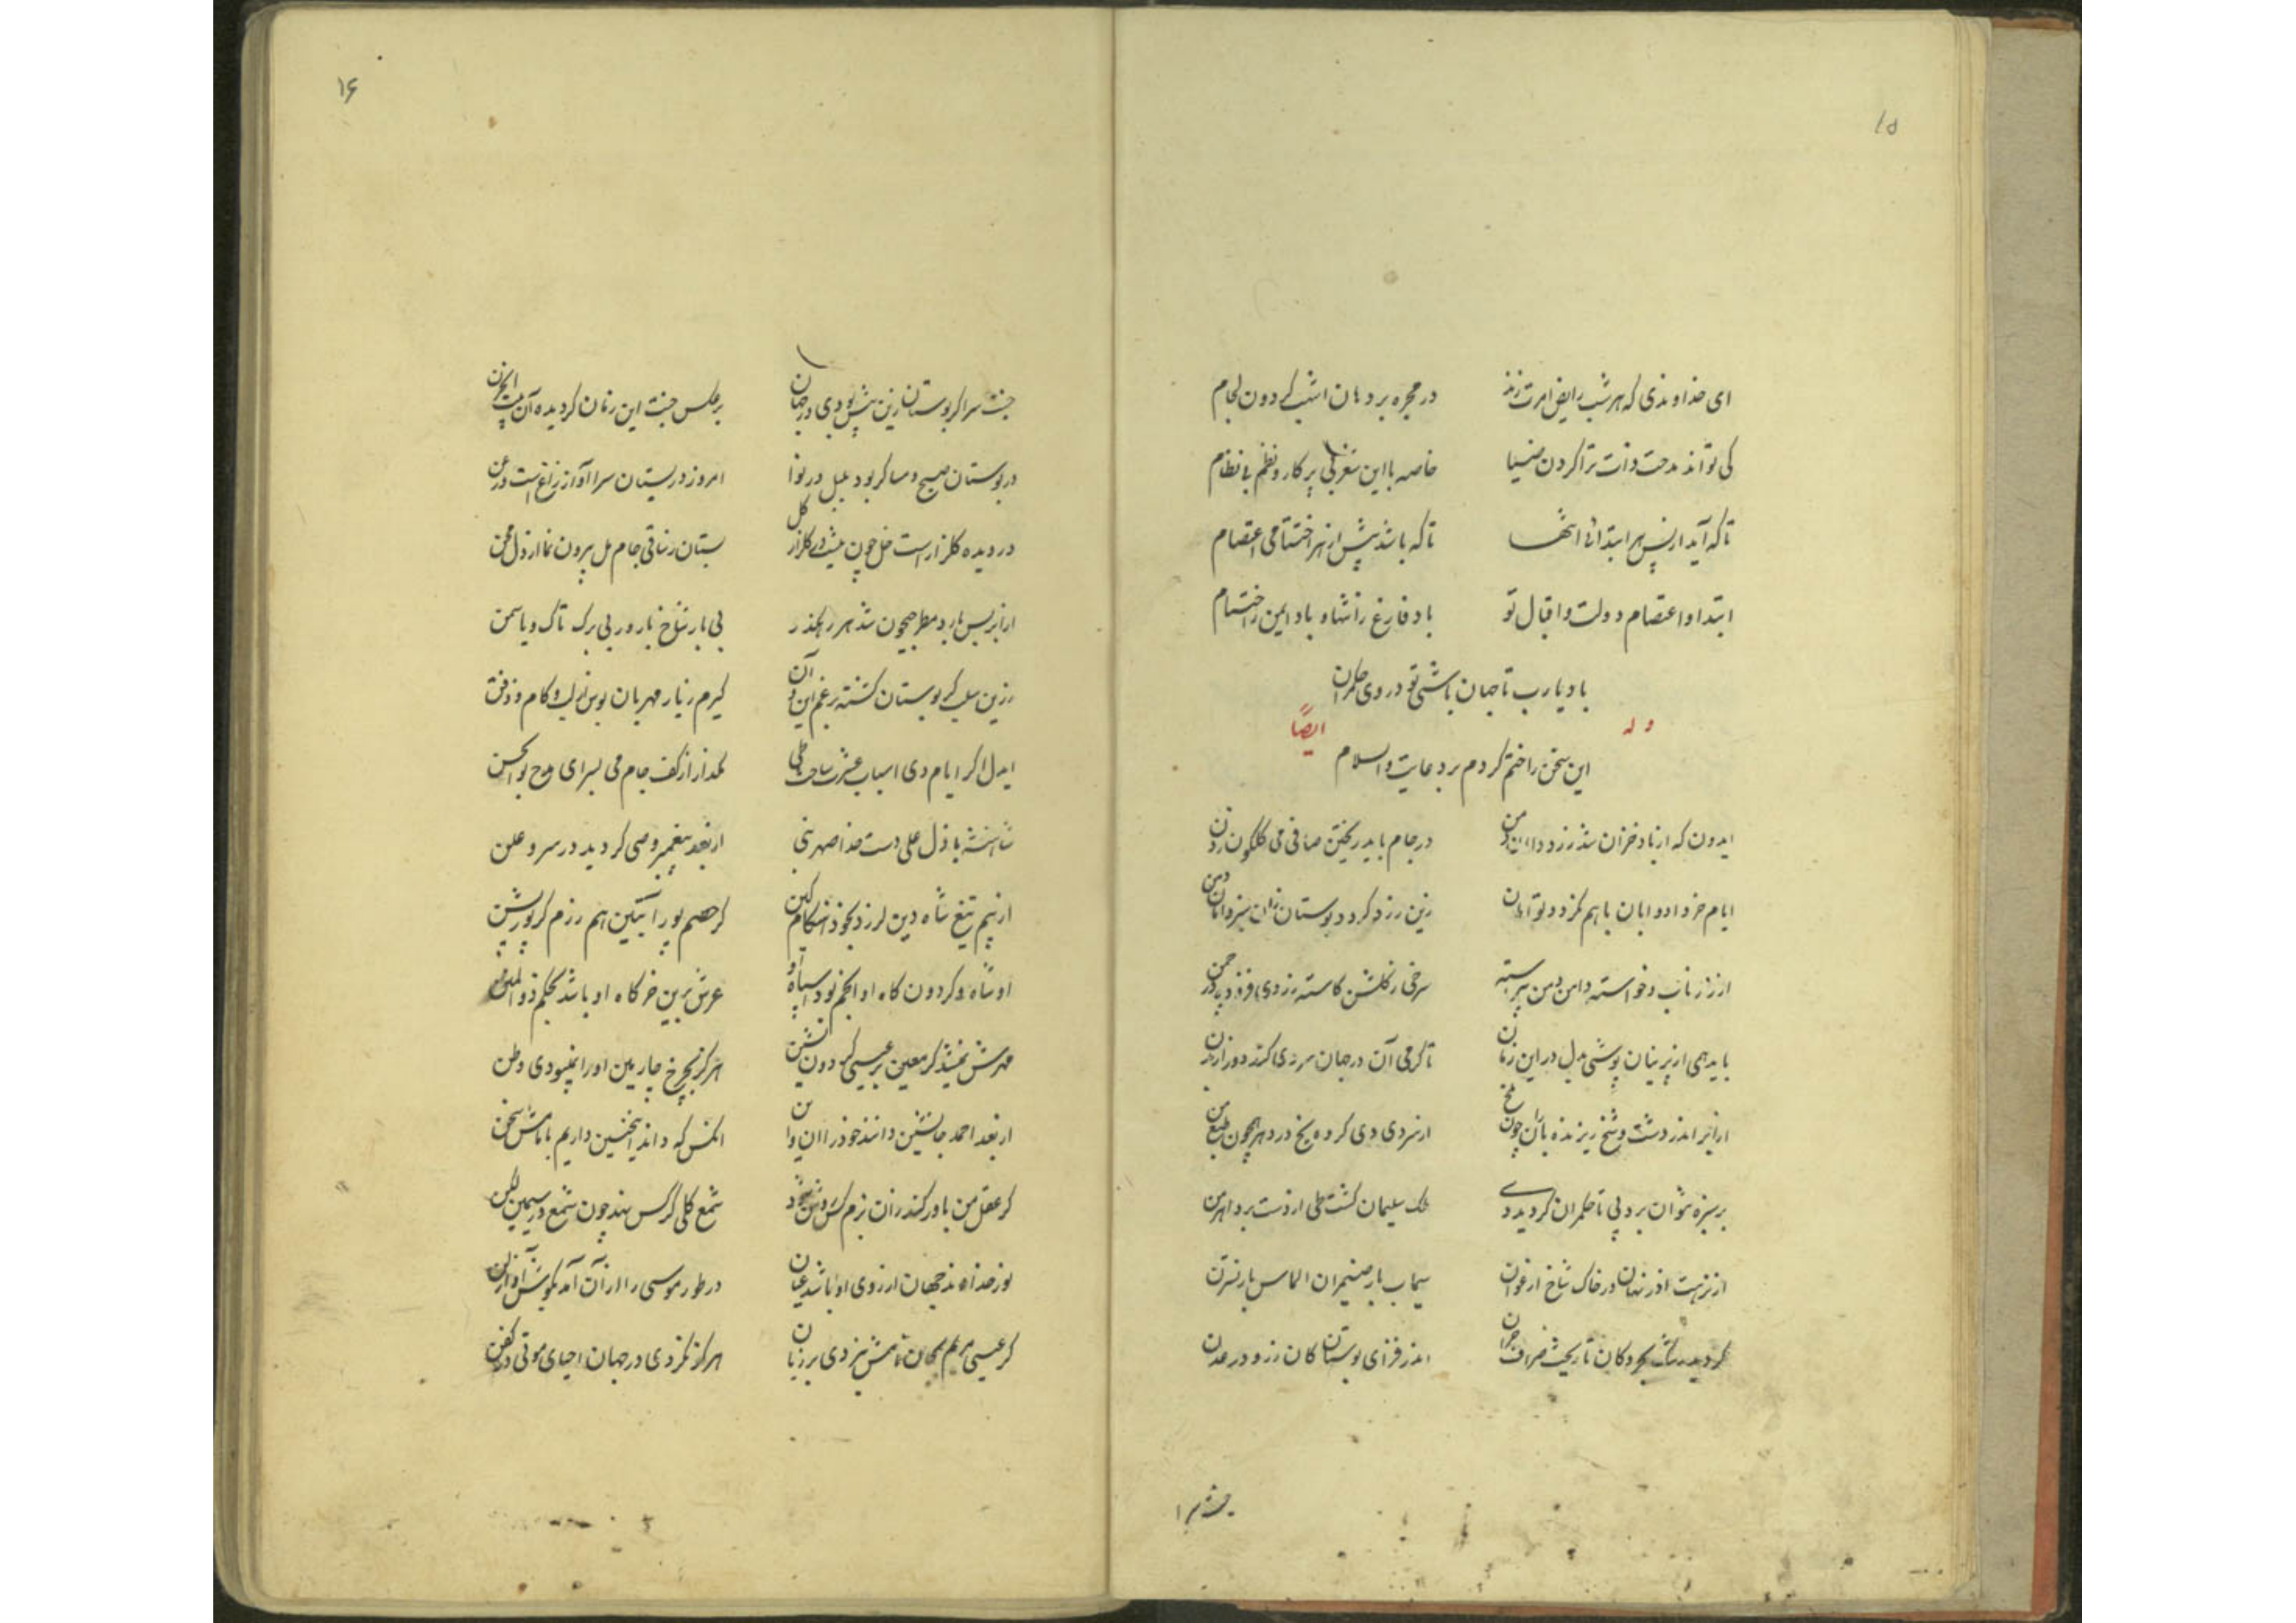 ۱۵
ای خداوندی که هر شب رایض امرت زند در مجره بر دهان اشهب گردون لجام
کی تواند مدحت ذات ترا کردن ضیا خاصه با این شعر بی پرکار و نظم بی نظام
تا که آید از پس هر ابتدائی انتها تا که باشد پیش از هر اختتامی اعتصام
ابتدا و اعتصام دولت و اقبال تو باد فارغ زانتها و باد ایمن ز اختتام
باد یا رب تا جهان باشی تو در وی حکمران
وله ایضاً
این سخن را ختم کردم بر دعایت والسلام
ایدون که از باد خزان شد زرد دامان دمن در جام باید ریختن صافی می گلگون زدن
ایام خرداد و ابان با هم نگردد توامان زین زرد گردد بوستان زان سبز دامان دمن
از زر ناب و خواسته دامن دمن پیراسته سرخی ز گلشن کاسته زردی فزوده در چمن
باید همی از پرنیان پوشی بدل در این زمان تا گرمی آن در جهان سردی کند دور از بدن
از ابر اندر دشت و شخ ریزنده باران چون ملخ از سردی دی کرده یخ در دهر همچون طبع من
بر سبزه نتوان برد پی تا حکمران گردید دی ملک سلیمان گشت طی از دست برد اهرمن
از نزهت اندر نهان در خاک شاخ ارغوان سیماب بار ضیمران الماس بار نسترن
گردید تاریخ خزان اندر فزای بوستان کان زر و در عدن
جنت سرا
۱۶
جنت سرا گر بوستان زین پیش بودی در جهان بر عکس جنت این زمان گردیده آن بیت الحزن
در بوستان صبح و مسا گر بود بلبل در نوا امروز در بستان سرا آواز زاغ است و زغن
در دیده گلزار است خل چون میشدی گلزار گل بستان ز ساقی جام مل بیرون نما از دل محن
از ابر بس بارد مطر جیحون شد هر رهگذر بی بار شاخ بارور بی برگ تاک و یاسمن
زین سان که بوستان گشته بر غم این و آن گیرم ز یار مهربان بوس از لب و کام و ذقن
ایدل اگر ایام دی اسباب عشرت ساخت طی مگذار از کف جام می بسرای مدح بوالحسن
شاهنشه باذل علی دست خدا صهر نبی از بعد پیغمبر وصی گردید در سر و علن
از بیم تیغ شاه دین لرزد بخود هنگام کین گر خصم پور آبتین هم رزم گر پور پشن
او شاه و گردون گاه او انجم بود سپاه او عرش برین خرگاه او باشد بحکم ذوالمنن
مهرش نمیشد گر معین بر عیسی گردون نشین هرگز بچرخ چارمین او را نبودی وطن
از بعد احمد جانشین دانند خود را این و آن آنکس که داند اینچنین داریم با ماش سخن
گر عقل من باور کند زان بزم کش روشن شود شمع گلی گر کس نهد چون شمع در سیمین لگن
نور خداوند جهان از روی او باشد عیان در طور موسی را از آن آمد بگوش آواز لن
گر عیسی مریم بجان نامش نبردی بر زبان هرگز نکردی در جهان احیای موتی در کفن